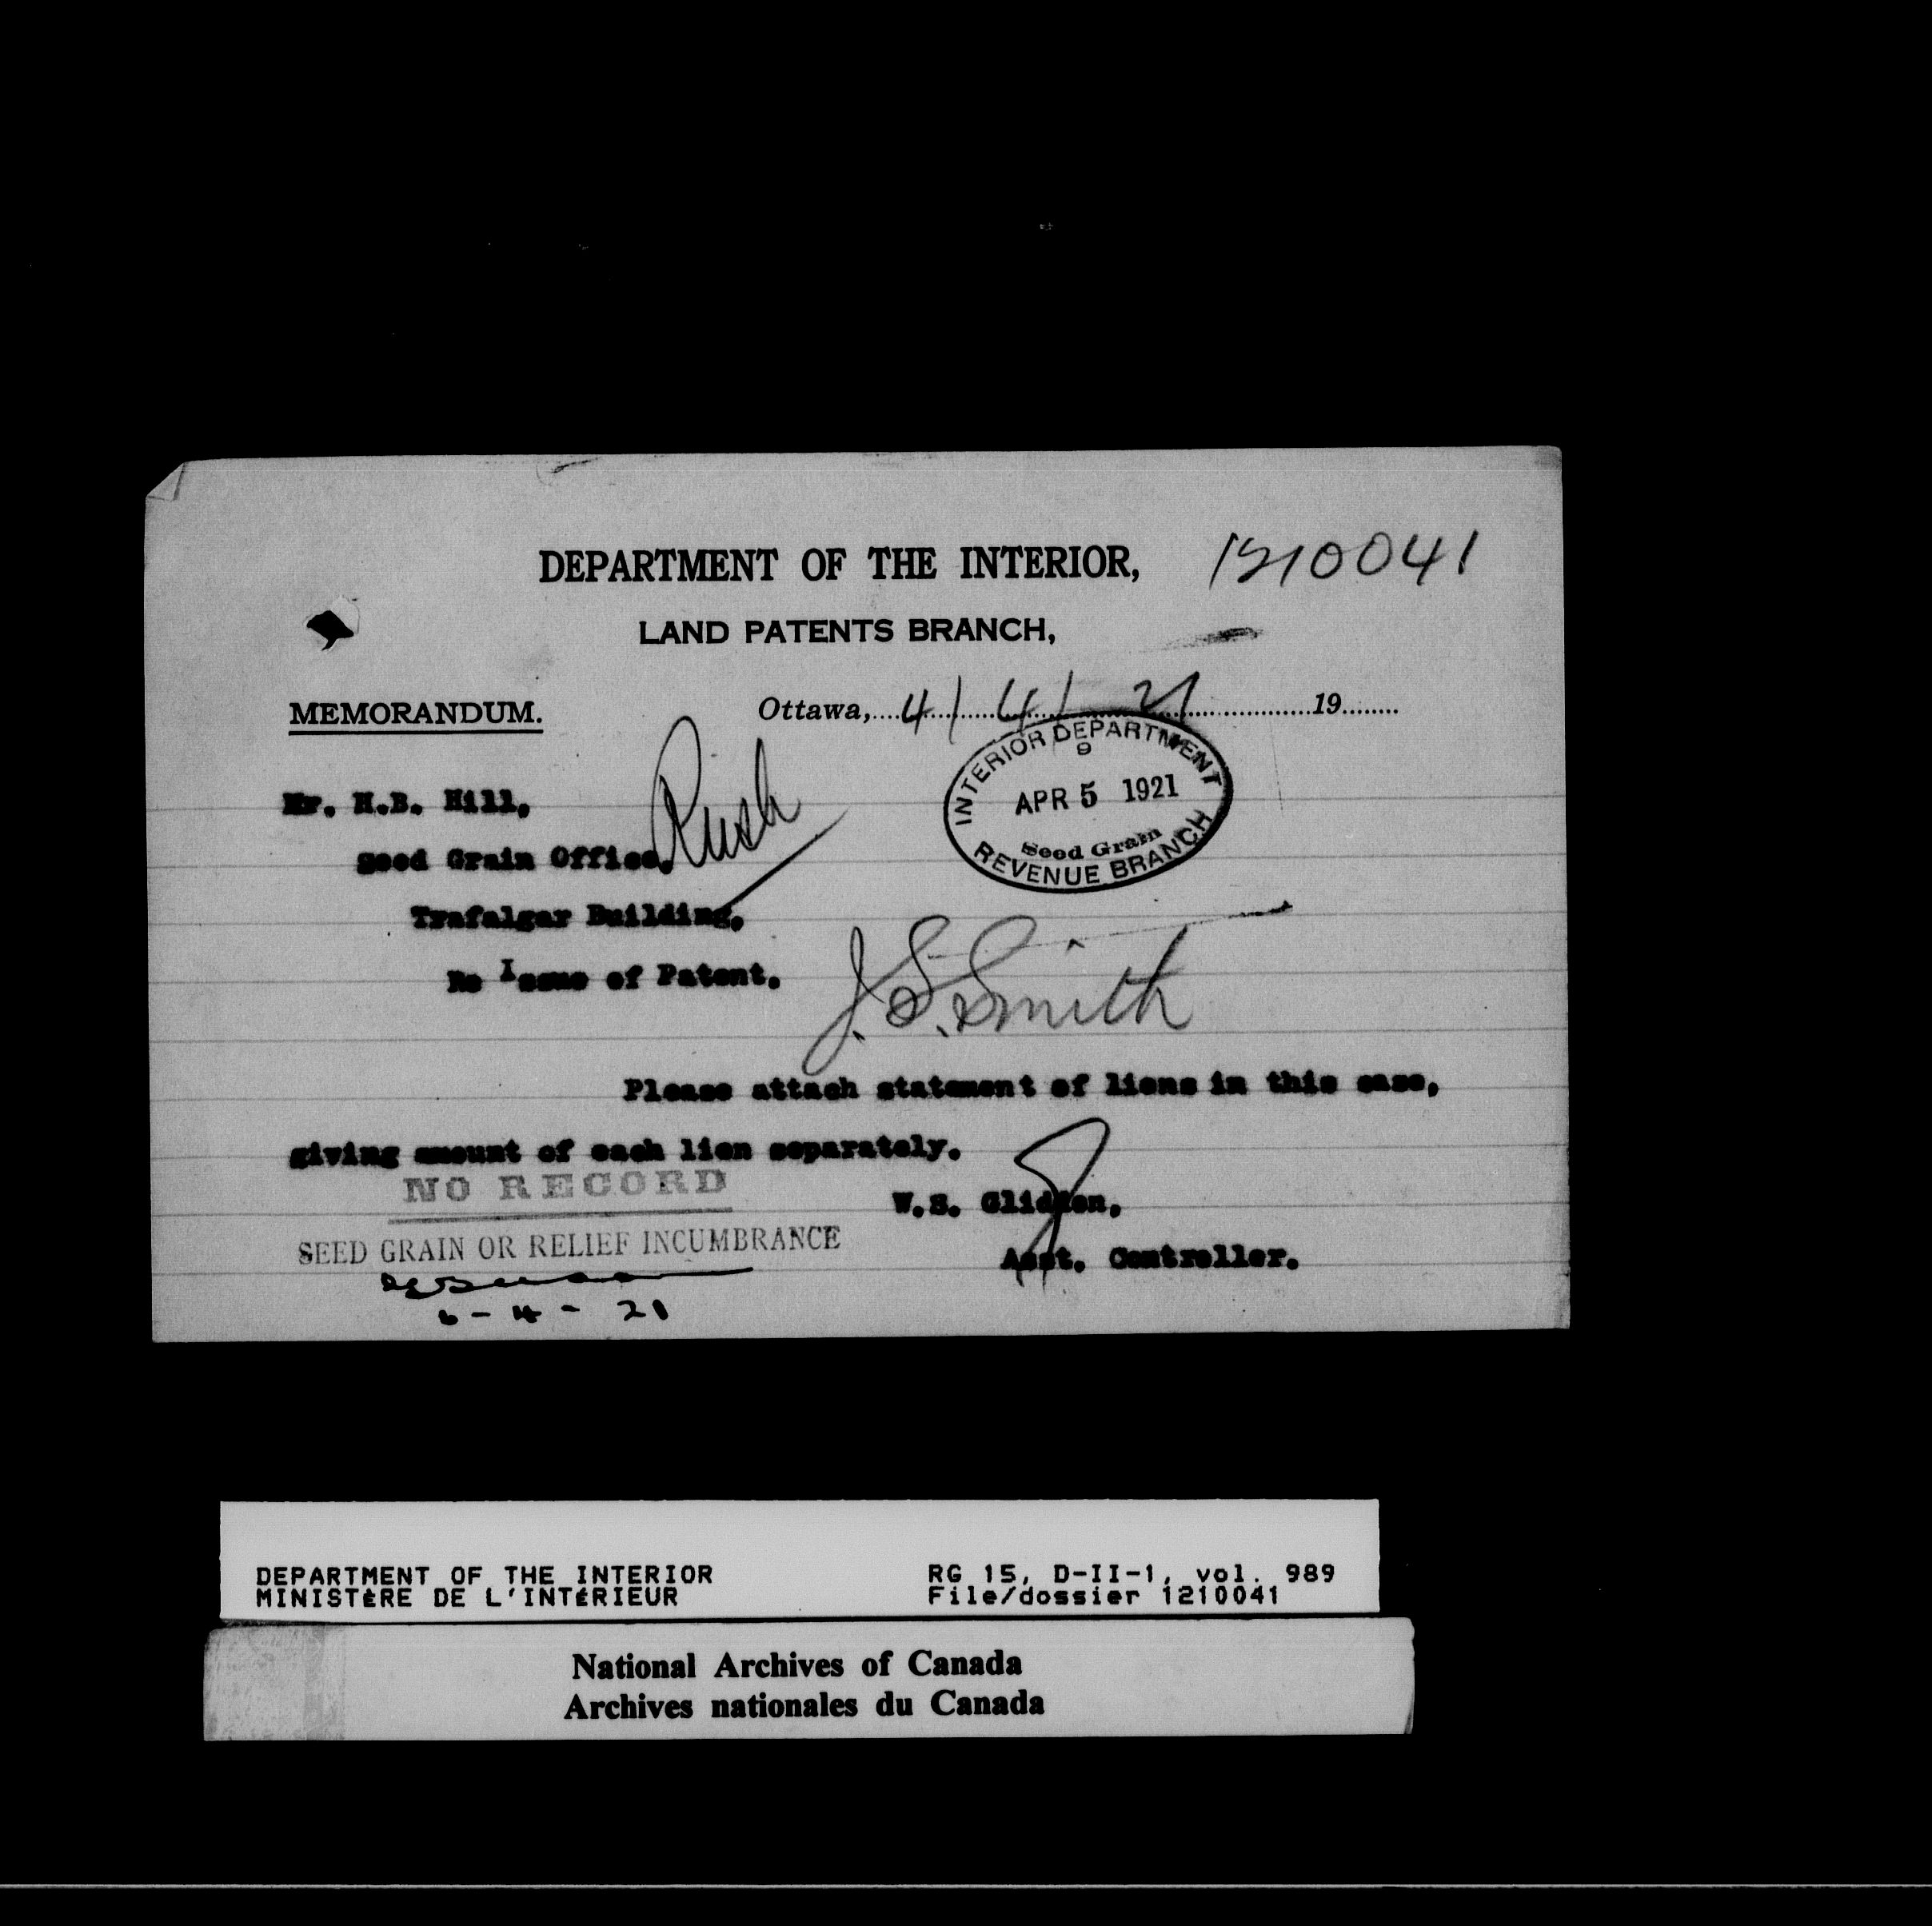 DEPARTMENT OF THE INTERIOR, 1210041
LAND PATENTS BRANCH,
MEMORANDUM. Ottawa, 4/4/21 19
INTERIOR DEPARTMENT
9
APR 5 1921
Seed Grain
REVENUE BRANCH
Mr. H.B. Hill, Rush
Seed Grain Office,
Trafalgar Building,
Re Issue of Patent. J.S. Smith
Please attach statement of liens in this case,
giving amount of each lien separately.
NO RECORD
W.S. Glidden,
SEED GRAIN OR RELIEF INCUMBRANCE
Asst. Controller.
6-4-21
DEPARTMENT OF THE INTERIOR RG 15, D-II-1, vol. 989
MINISTÈRE DE L'INTÉRIEUR File/dossier 1210041
National Archives of Canada
Archives nationales du Canada